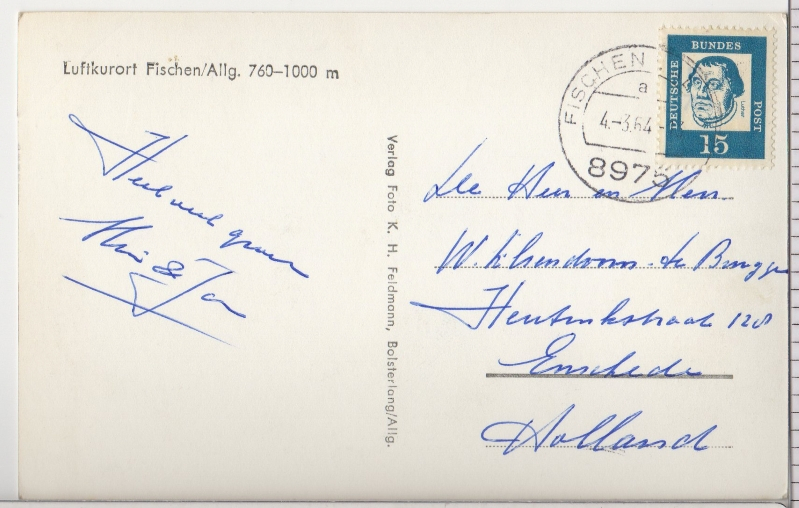 Luftkurort Fischen/Allg. 760–1000 m
Heel veel groeten
& Jan
Verlag Foto K. H. Feldmann, Bolsterlang/Allg.
FISCHEN
a
4.-3.64
8975
DEUTSCHE BUNDES POST
Luther
15
De Heer en Mevr.
W. te Brugge
128
Enschede
Holland